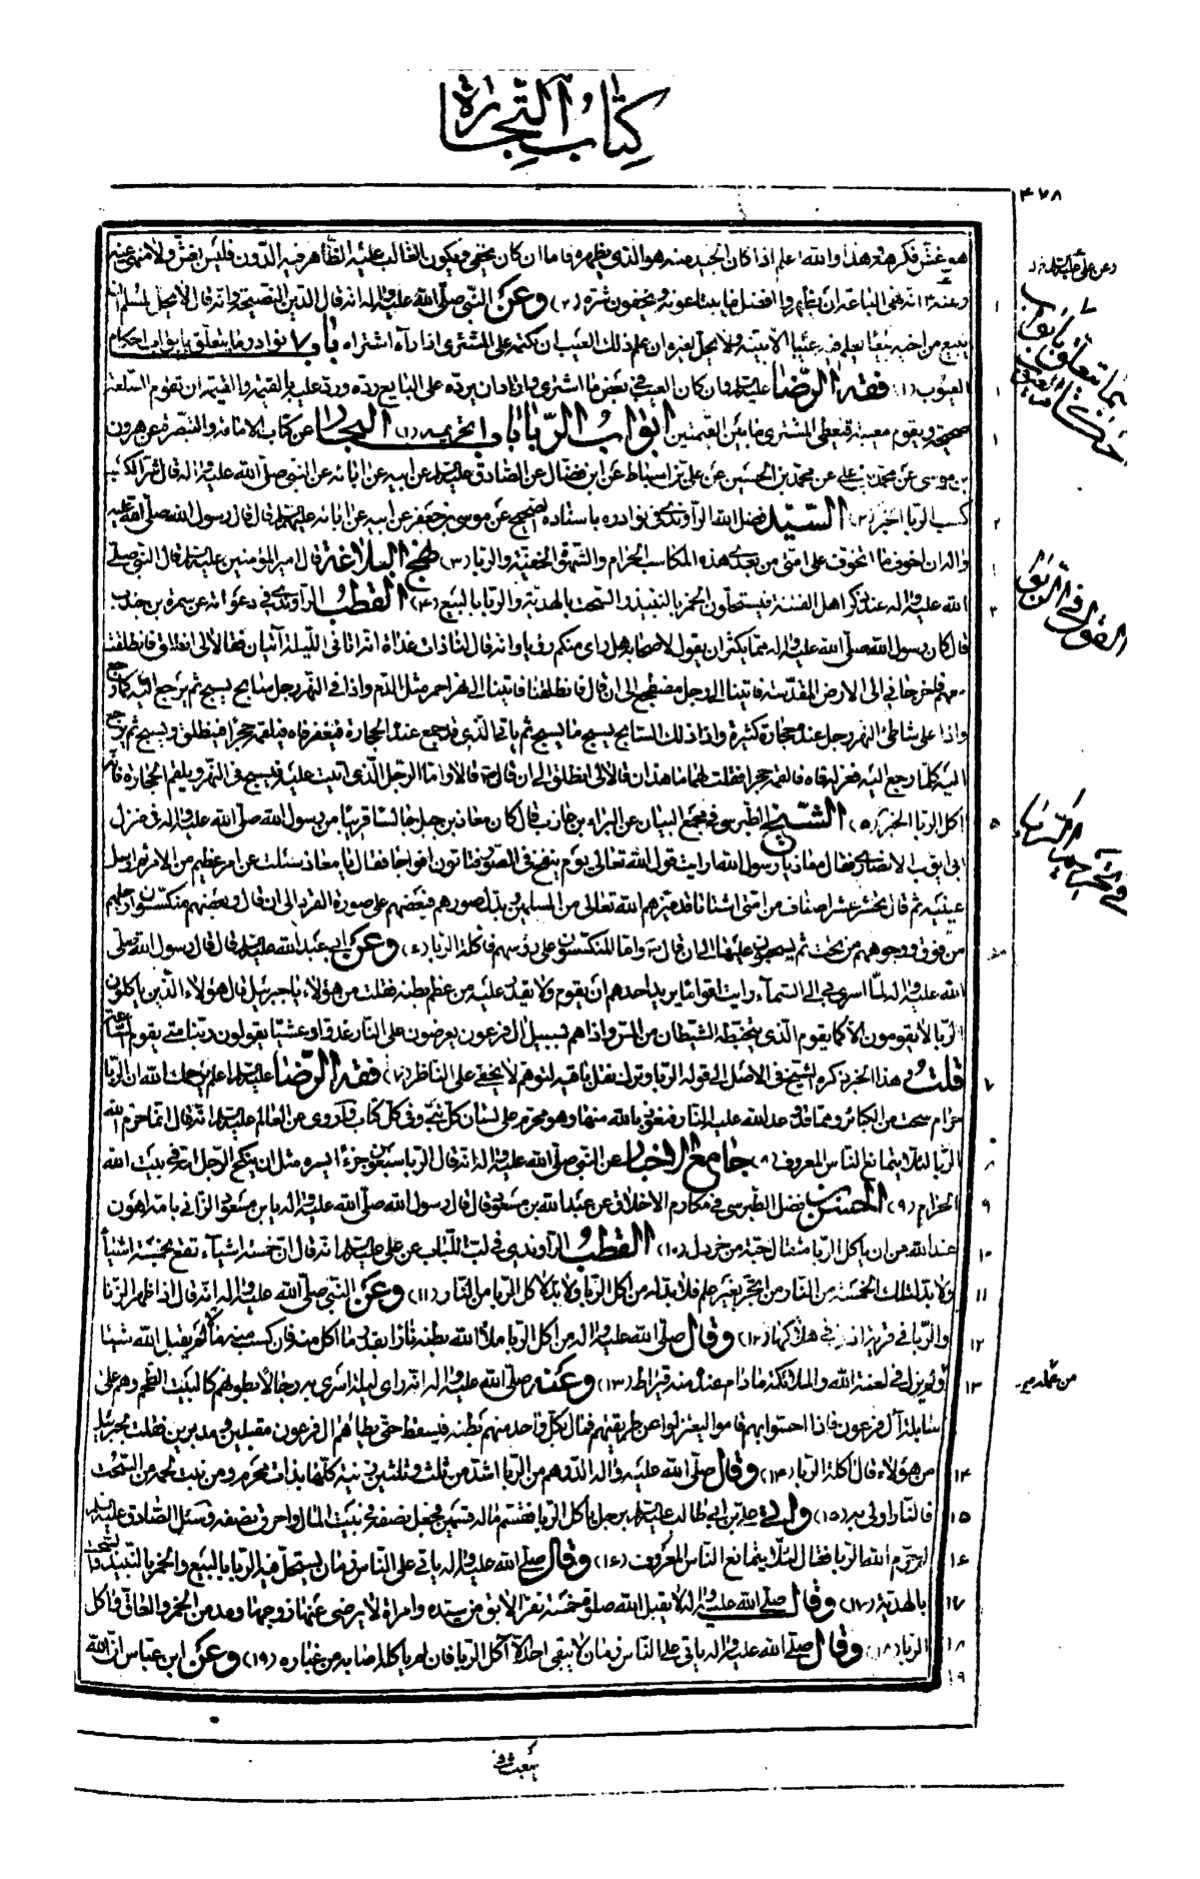 كتاب التجارة
٤٧٨
هو غش فكرهه هذا والله اعلم اذا كان الجيد منه هو الذي يظهره فاما ان كان يخفى ويكون الغالب عليه الظاهر فيه الدون فليس بغش ولا منهى عنه
وعنه انه نهى الباعة ان وعن النبي صلى الله عليه واله انه قال الدين النصيحة وانه قال لا يحل لمسلم ان
يبيع من اخيه بيعا يعلم فيه عيبا الا بينه ولا يحل لغيره ان علم ذلك العيب ان يكتمه على المشتري اذا رآه اشتراه باب ٧ نوادر ما يتعلق بابواب احكام
العيوب (١) فقه الرضا عليه السلم وان كان العيب في بعض ما اشترى واراد ان يرده على البايع رده ورد عليه بالقيمة والقيمة ان تقوم السلعة
صحيحة ويقوم معيبة فيعطى المشتري ما بين القيمتين ابواب الربا باب تحريمه (١) البحار عن كتاب الامامة والتبصرة عن هرون
بن موسى عن محمد بن علي عن محمد بن الحسين عن علي بن اسباط عن ابن فضال عن الصادق عليه السلم عن ابيه عن ابائه عن النبي صلى الله عليه واله قال شر الكسب
كسب الربا الخبر (٢) السيد فضل الله الراوندي في نوادره باسناده الصحيح عن موسى بن جعفر عن ابيه عن ابائه عليهم السلم قال قال رسول الله صلى الله عليه
واله ان اخوف ما اتخوف على امتى من بعدى هذه المكاسب الحرام والشهوة الخفية والربا (٣) نهج البلاغة قال امير المؤمنين عليه السلم قال النبي صلى
الله عليه واله عند ذكر اهل الفتنة فيستحلون الخمر بالنبيذ والسحت بالهدية والربا بالبيع (٤) القطب الراوندي في دعواته عن سمرة بن جندب
قال كان رسول الله صلى الله عليه واله مما يكثر ان يقول لاصحابه هل راى منكم رؤيا وانه قال لنا ذات غداة انه اتانى الليلة آتيان فقالا لى انطلق فانطلقت
معهما فاخرجانى الى الارض المقدسة فاتينا الى رجل مضطجع الى ان قال فانطلقنا فاتينا الى نهر احمر مثل الدم واذا في النهر رجل سابح يسبح ثم يرجع اليه كما رجع
واذا على شاطئ النهر رجل عنده حجارة كثيرة واذا ذلك السابح يسبح ما يسبح ثم ياتى الذي قد جمع عنده الحجارة فيفغر فاه فيلقمه حجرا فينطلق ويسبح ثم يرجع
اليه كلما رجع اليه فغر له فاه فالقمه حجرا فقلت لهما ما هذان قالا لى انطلق الى ان قال قالا واما الرجل الذي اتيت عليه يسبح في النهر ويلقم الحجارة فانه
اكل الربا الخبر (٥) الشيخ الطبرسي في مجمع البيان عن البراء بن عازب قال كان معاذ بن جبل جالسا قريبا من رسول الله صلى الله عليه واله في منزل
ابى ايوب الانصاري فقال معاذ يا رسول الله ارايت قول الله تعالى يوم ينفخ في الصور فتاتون افواجا فقال يا معاذ سئلت عن امر عظيم من الامر ثم ارسل
عينيه ثم قال يحشر عشرة اصناف من امتى اشتاتا قد ميزهم الله تعالى من المسلمين وبدل صورهم فبعضهم على صورة القردة الى ان قال وبعضهم منكسون ارجلهم
من فوق وجوههم من تحت ثم يسحبون عليها الى ان قال واما المنكسون على رؤسهم فاكلة الربا (٦) وعن ابى عبد الله عليه السلم قال قال رسول الله صلى
الله عليه واله لما اسرى بى الى السماء رايت اقواما يريد احدهم ان يقوم ولا يقدر عليه من عظم بطنه فقلت من هؤلاء يا جبرئيل قال هؤلاء الذين ياكلون
الربا لا يقومون الا كما يقوم الذي يتخبطه الشيطان من المس واذا هم بسبيل آل فرعون يعرضون على النار غدوا وعشيا يقولون ربنا متى تقوم الساعة
قلت وهذا الخبر ذكره الشيخ في الاصل الى قوله الربا وترك نقل باقيه لتوهم لا يخفى على الناظر (٧) فقه الرضا عليه السلم اعلم يرحمك الله ان الربا
حرام سحت من الكبائر ومما قد وعد الله عليه النار فنعوذ بالله منها وهو محرم على لسان كل نبى وفي كل كتاب وقد اروى عن العالم عليه السلم انه قال انما حرم الله
الربا لئلا يتمانع الناس المعروف (٨) جامع الاخبار عن النبي صلى الله عليه واله انه قال الربا سبعون جزءا ايسره مثل ان ينكح الرجل امه في بيت الله
الحرام (٩) الحسن بن فضل الطبرسي في مكارم الاخلاق عن عبد الله بن مسعود قال قال رسول الله صلى الله عليه واله يا بن مسعود الزاني بامه اهون
عند الله من ان ياكل الربا مثقال حبة من خردل (١٠) القطب الراوندي في لب اللباب عن على عليه السلم انه قال خمسة اشياء تقع بخمسة اشياء
ولا بد لتلك الخمسة من النار من اتجر بغير علم فلا بد له من اكل الربا ولا بد لاكل الربا من النار (١١) وعن النبي صلى الله عليه واله انه قال اذا ظهر الزنا
والربا في قرية اذن في هلاكها (١٢) وقال صلى الله عليه واله من اكل الربا ملأ الله بطنه نارا بقدر ما اكل منه فان كسب منه مالا لم يقبل الله شيئا
ولم يزل في لعنة الله والملائكة ما دام عنده منه قيراط (١٣) وعنه صلى الله عليه واله انه راى ليلة اسرى به رجالا بطونهم كالبيت الطحم وهم على
سابلة آل فرعون فاذا احسوا بهم قاموا ليعتزلوا عن طريقهم فمال بكل واحد منهم بطنه فيسقط حتى يطاهم ال فرعون مقبلين ومدبرين فقلت لجبرئيل
من هؤلاء قال اكلة الربا (١٤) وقال صلى الله عليه واله الدرهم من الربا اشد من ثلث وثلثين زنية كلها بذات محرم ومن نبت لحمه من السحت
فالنار اولى به (١٥) واتى على بن ابى طالب عليه السلم برجل ياكل الربا فقسم ماله قسمين فجعل نصفه في بيت المال واحرق نصفه وسئل الصادق عليه السلم
لم حرم الله الربا فقال لئلا يتمانع الناس المعروف (١٦) وقال صلى الله عليه واله ياتى على الناس زمان يستحل فيه الربا بالبيع والخمر بالنبيذ والسحت
بالهدية (١٧) وقال صلى الله عليه واله لا يقبل الله صلوة خمسة نفر الآبق من سيده وامراة لا يرضى عنها زوجها ومدمن الخمر والعاق واكل
الربا (١٨) وقال صلى الله عليه واله ياتى على الناس زمان لا يبقى احد الا آكل الربا فان لم ياكله اصابه من غباره (١٩) وعن ابن عباس ان الله